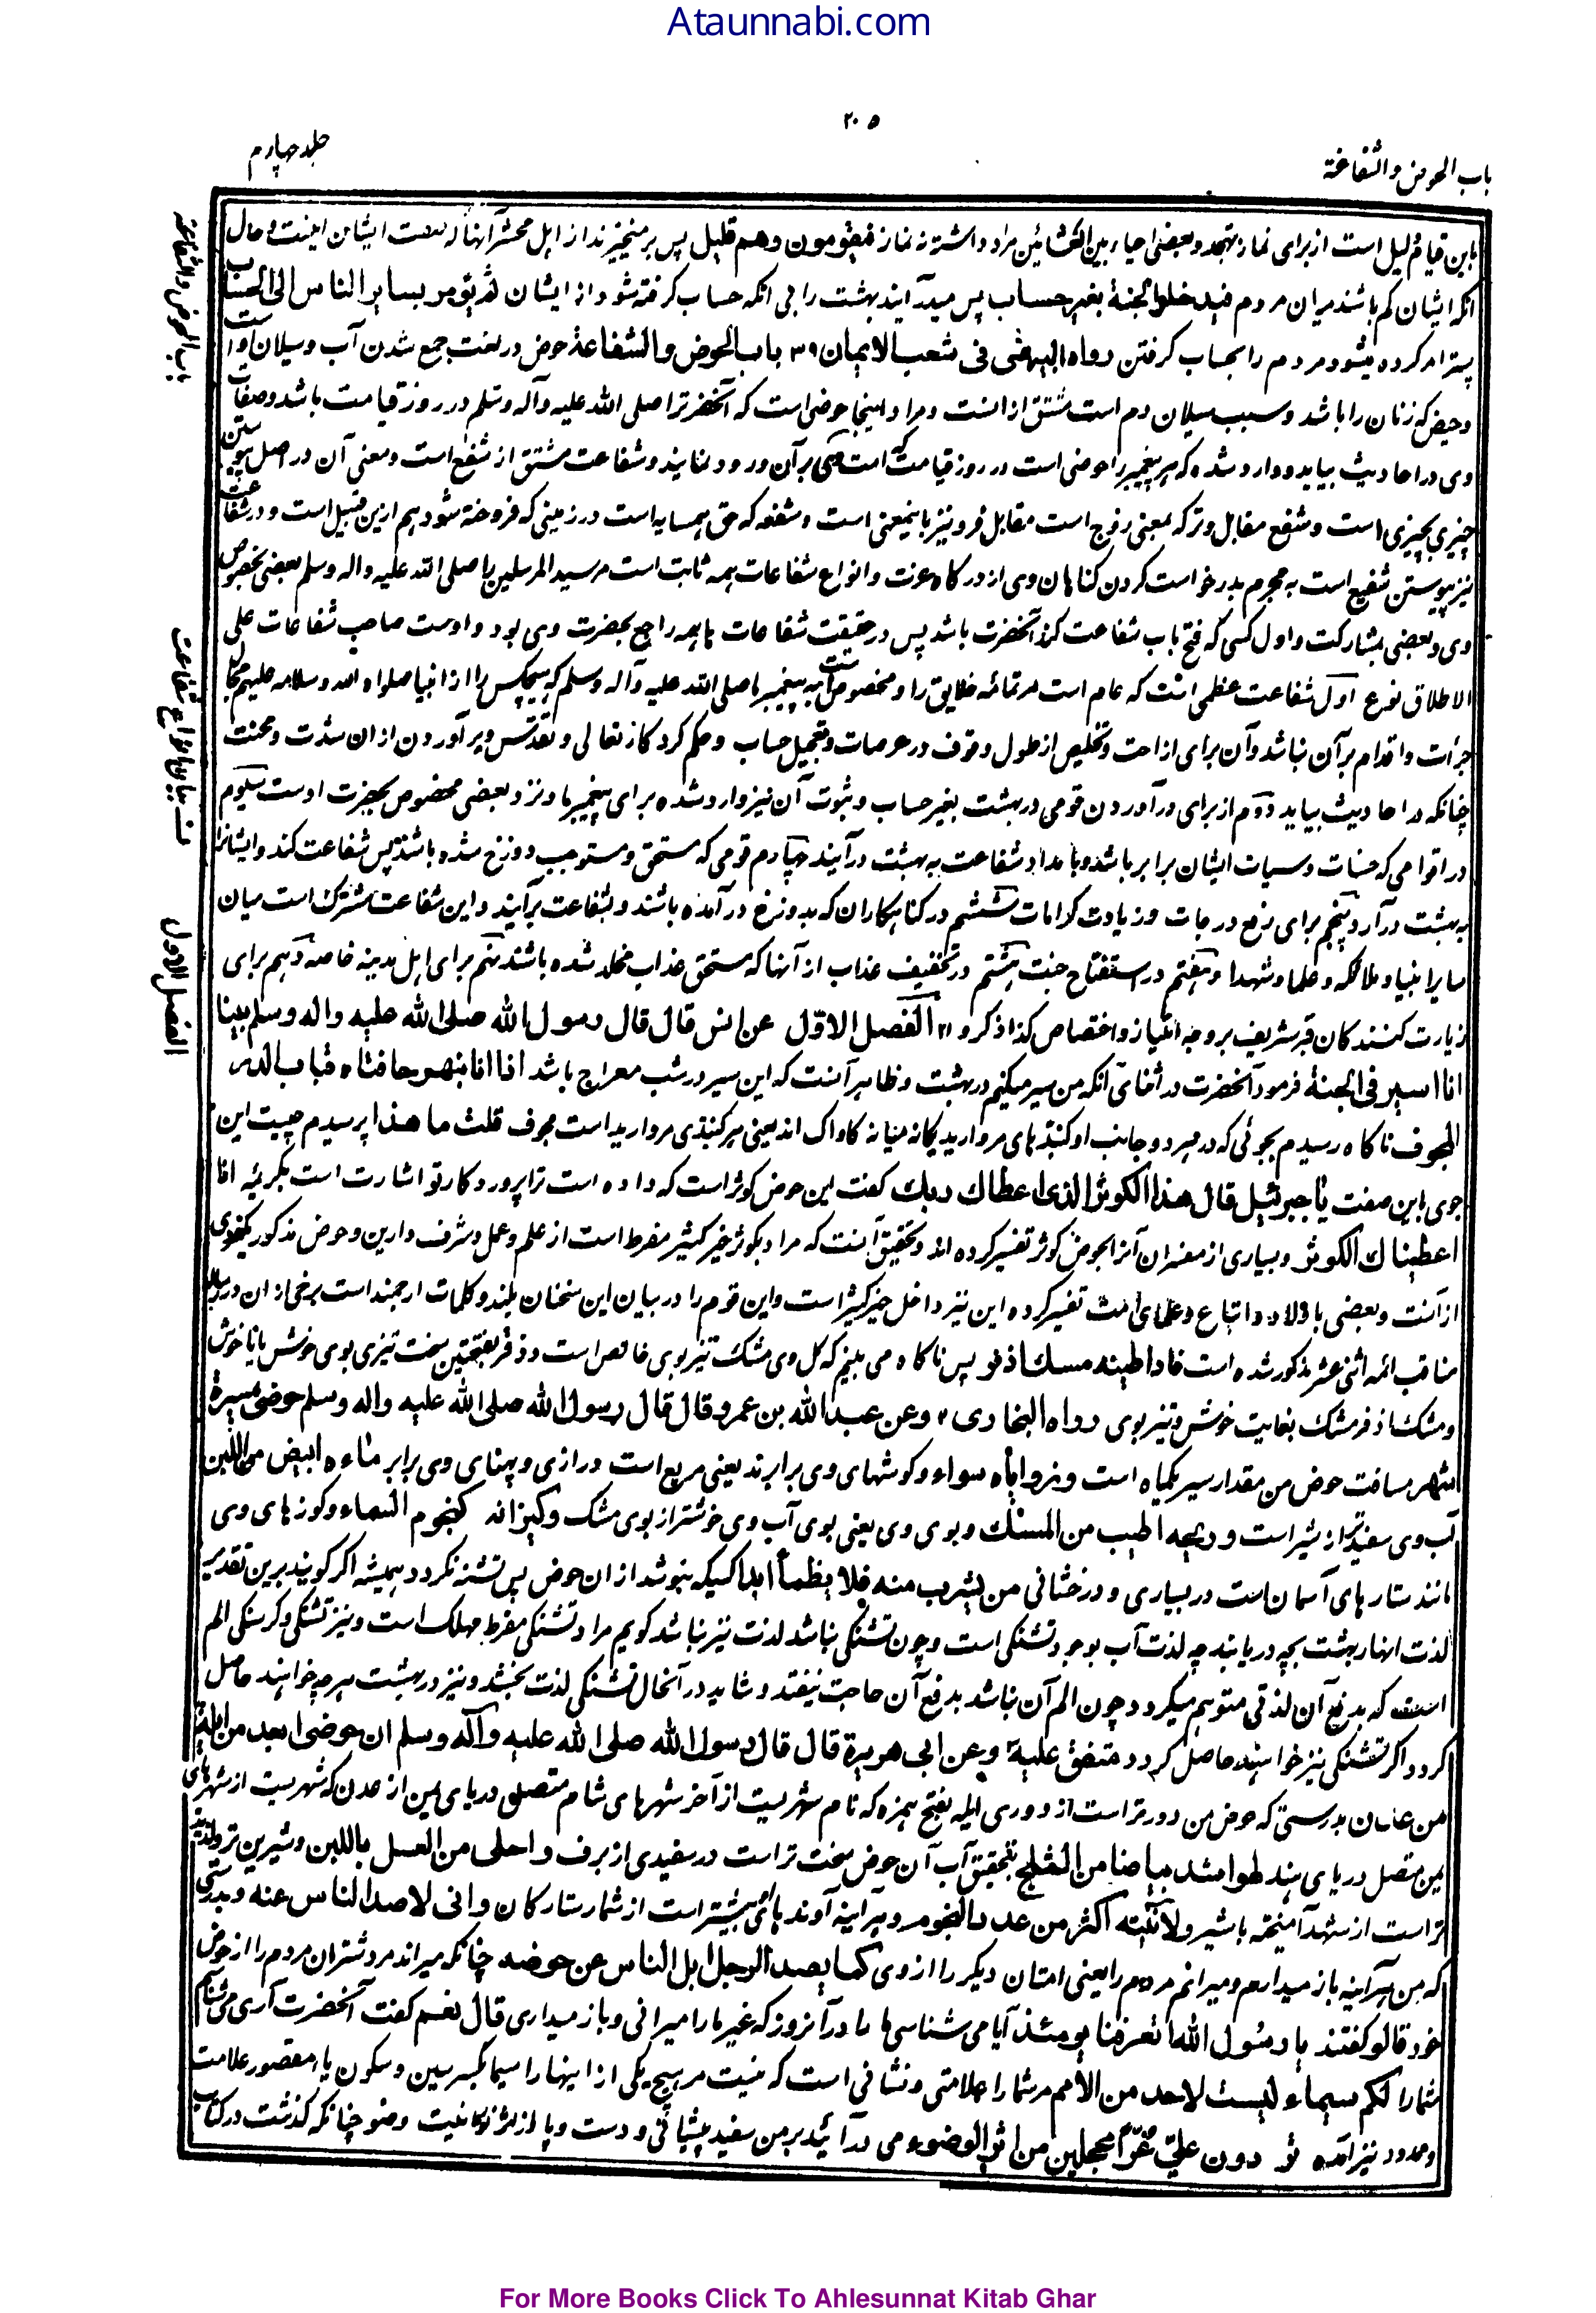 Ataunnabi.com
۲۰۵
باب الحوض والشفاعة
جلد چهارم
باین قیام لیل است از برای نماز تهجد و بعضی احیاء بین العشائین مراد داشته نه نماز فیقومون وهم قلیل پس برمیخیزند از اهل محشر آنها که صفت ایشان اینست و حال
انکه ایشان کم باشند میان مردم فیدخلوا الجنة بغیر حساب پس میدرآیند بهشت را بی انکه حساب کرفته شود از ایشان ثم یؤمر بسایر الناس الی الحساب
پستر امر کرده میشود مردم را بحساب کرفتن رواه البیهقی فی شعب الایمان باب الحوض والشفاعة حوض در لغت جمع شدن آب و سیلان اوست
و حیض که زنان را باشد و سبب سیلان دم است مشتق از انست و مراد اینجا حوضی است که آنحضرت را صلی الله علیه وآله وسلم در روز قیامت باشد و صفات
وی در احادیث بیاید و وارد شده که هر پیغمبر را حوضی است در روز قیامت که امت وی بر آن ورود نمایند و شفاعت مشتق از شفع است و معنی آن در اصل پیوستن
چیزی بچیزی است و شفع مقابل وتر که بمعنی زوج است مقابل فرد نیز باینمعنی است و شفعه که حق همسایه است در زمینی که فروخته شود هم ازین قبیل است و در شفاعت
نیز پیوستن شفیع است به مجرم بدرخواست کردن کناهان وی از درکاه عزت و انواع شفاعات همه ثابت است مر سید المرسلین را صلی الله علیه واله وسلم بعضی بخصوص
وی و بعضی بمشارکت و اول کسی که فتح باب شفاعت کند آنحضرت باشد پس در حقیقت شفاعات همه راجع بحضرت وی بود و اوست صاحب شفاعات علی
الاطلاق نوع اول شفاعت عظمی است که عام است مر تمامه خلایق را و مخصوص است به پیغمبر ما صلی الله علیه وآله وسلم که هیچکس را از انبیا صلواة الله وسلامه علیهم مجال
جرأت و اقدام بر آن نباشد و آن برای ازاحت و تخلیص از طول وقوف در عرصات و تعجیل حساب و حکم کردکار تعالی و تقدس و برآوردن از ان شدت و محنت
چنانکه در احادیث بیاید دوم از برای درآوردن قومی در بهشت بغیر حساب و ثبوت آن نیز وارد شده برای پیغمبر ما و نزد بعضی مخصوص بحضرت اوست سیوم
در اقوامی که حسنات و سیئات ایشان برابر باشد و بامداد شفاعت به بهشت درآیند چهارم قومی که مستحق و مستوجب دوزخ شده باشند پس شفاعت کند و ایشانرا
به بهشت درآرد پنجم برای رفع درجات و زیادت کرامات ششم در کناهکاران که بدوزخ درآمده باشند و بشفاعت برآیند و این شفاعت مشترک است میان
سایر انبیا و ملائکه و علما و شهدا و هفتم در استفتاح جنت هشتم در تخفیف عذاب از آنها که مستحق عذاب مخلد شده باشند نهم برای اهل مدینه خاصه دهم برای
زیارت کنندکان قبر شریف بر وجه امتیاز و اختصاص کذا ذکروا الفصل الاول عن انس قال قال رسول الله صلی الله علیه واله وسلم بینا
انا اسیر فی الجنة فرمود آنحضرت در اثنای آنکه من سیر میکنم در بهشت و ظاهر آنست که این سیر در شب معراج باشد اذا انا بنهر حافتاه قباب الدر
المجوف ناکاه رسیدم بجوئی که در هر دو جانب او کنبدهای مروارید یکانه میانه کاواک اند یعنی هر کنبذی مروارید است مجوف قلت ما هذا پرسیدم چیست این
جوی باین صفت یا جبرئیل قال هذا الکوثر الذی اعطاک ربک کفت این حوض کوثر است که داده است ترا پروردکار تو اشارت است بکریمه انا
اعطیناک الکوثر و بسیاری از مفسران آنرا بحوض کوثر تفسیر کرده اند و تحقیق آنست که مراد بکوثر خیر کثیر مفرط است از علم و عمل و شرف دارین و حوض مذکور یکفردی
از آنست و بعضی باولاد و اتباع و علمای امت تفسیر کرده این نیز داخل خیر کثیر است و این قوم را در بیان این سخنان بلند و کلمات ارجمند است برخی از ان در رساله
مناقب ائمه اثنی عشر مذکور شده است فاذا طینه مسک اذفر پس ناکاه می بینم که کل وی مشک تیز بوی خالص است و ذفر بفتحتین سخت تیزی بوی خوش یا ناخوش
و مشک اذفر مشک بغایت خوش و تیز بوی رواه البخاری وعن عبد الله بن عمرو قال قال رسول الله صلی الله علیه واله وسلم حوضی مسیرة
شهر مسافت حوض من مقدار سیر یکماه است وزوایاه سواء و کوشهای وی برابرند یعنی مربع است درازی و پهنای وی برابر ماءه ابیض من اللبن
آب وی سفیدتر از شیر است وریحه اطیب من المسک و بوی وی یعنی بوی آب وی خوشتر از بوی مشک وکیزانه کنجوم السماء و کوزهای وی
مانند ستارهای آسمان است در بسیاری و درخشانی من یشرب منه فلا یظمأ ابدا کسیکه بنوشد از ان حوض پس تشنه نکردد همیشه اکر کویند برین تقدیر
لذت انهار بهشت بچه دریابند چه لذت آب بوجود تشنکی است و چون تشنکی نباشد لذت نیز نباشد کویم مراد تشنکی مفرط مهلک است و نیز تشنکی و کرسنکی الم
است که بدفع آن لذتی متوهم میکردد چون الم آن نباشد بدفع آن حاجت نیفتد و شاید در آنحال تشنکی لذت بخشد و نیز در بهشت هرچه خواهند حاصل
کردد اکر تشنکی نیز خواهند حاصل کردد متفق علیه وعن ابی هریرة قال قال رسول الله صلی الله علیه وآله وسلم ان حوضی ابعد من ایلة
من عدن بدرستی که حوض من دورتر است از دوری ایله بفتح همزه که نام شهریست از آخر شهرهای شام متصل دریای یمن از عدن که شهریست از شهرهای
یمن متصل دریای هند لهو اشد بیاضا من الثلج بتحقیق آب آن حوض سخت تر است در سفیدی از برف واحلی من العسل باللبن و شیرین تر و لذیذ
تر است از شهد آمیخته باشیر ولآنیته اکثر من عدد النجوم و هرآینه آوندهای وی بیشتر است از شمار ستارکان وانی لاصد الناس عنه و بدرستی
که من هرآینه باز میدارم و میرانم مردم را یعنی امتان دیکر را از وی کما یصد الرجل ابل الناس عن حوضه چنانکه میراند مرد شتران مردم را از حوض
خود قالوا کفتند یا رسول الله اتعرفنا یومئذ آیا می شناسی ما را در آنروز که غیر ما را میرانی و باز میداری قال نعم کفت آنحضرت آری می شناسم
شما را لکم سیماء لیست لاحد من الامم مر شما را علامتی و نشانی است که نیست مر هیچ یکی از اینها را سیما بکسر سین و سکون یا مقصور علامت
و ممدود نیز آمده تردون علی غرا محجلین من اثر الوضوء می درآئید بر من سفید پیشانی و دست و پا از اثر نورانیت وضو چنانکه کذشت در کتاب
باب الحوض والشفاعة
بیان انواع شفاعت
الفصل الاول
For More Books Click To Ahlesunnat Kitab Ghar